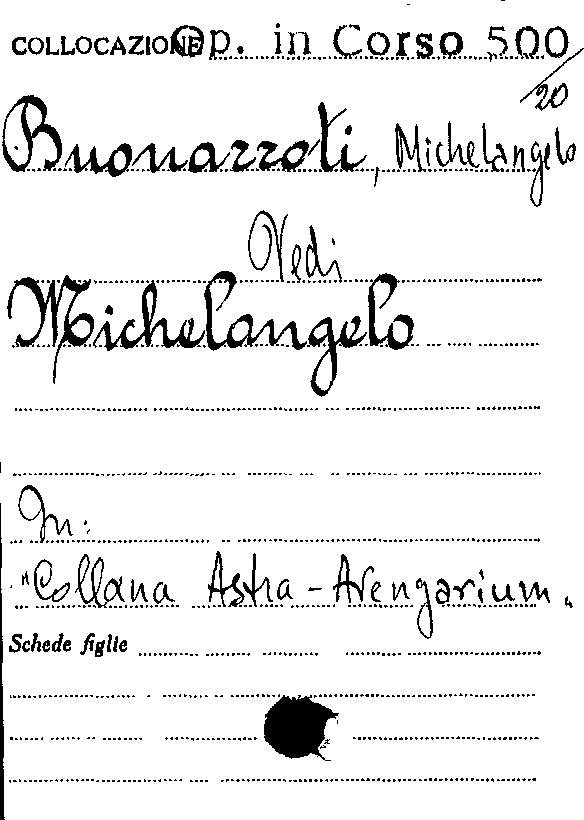 COLLOCAZIONE Op. in Corso 500
/20
Buonarroti, Michelangelo
Vedi
Michelangelo
In:
"Collana Astra - Arengarium"
Schede figlie